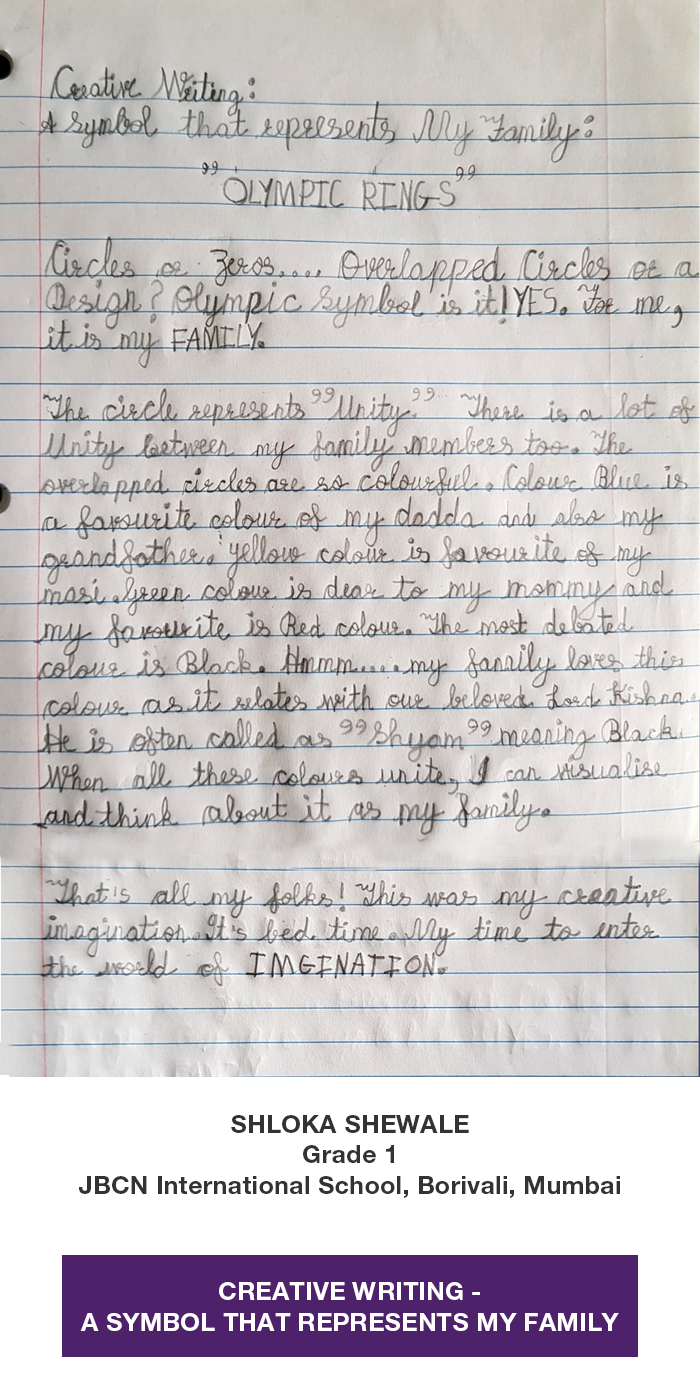 Creative Writing:
A Symbol that represents My Family:
"OLYMPIC RINGS"
Circles or Zeros.... Overlapped Circles or a
Design? Olympic Symbol is it! YES. For me,
it is my FAMILY.
The circle represents "Unity." There is a lot of
Unity between my family members too. The
overlapped circles are so colourful. Colour Blue is
a favourite colour of my dadda and also my
grandfather. yellow colour is favourite of my
masi. Green colour is dear to my mommy and
my favourite is Red colour. The most debated
colour is Black. Hmmm.... my family loves this
colour as it relates with our beloved Lord Kishna.
He is often called as "Shyam" meaning Black.
When all these colours unite, I can visualise
and think about it as my family.
That's all my folks! This was my creative
imagination. It's bed time. My time to enter
the world of IMGINATION.
SHLOKA SHEWALE
Grade 1
JBCN International School, Borivali, Mumbai
CREATIVE WRITING -
A SYMBOL THAT REPRESENTS MY FAMILY